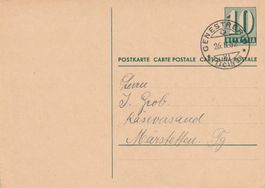 10
HELVETIA
GERESTREN
POSTKARTE CARTE POSTALE CARTOLINA POSTALE
Herrn
J. Grob.
Käseversand
Märstetten. Tg